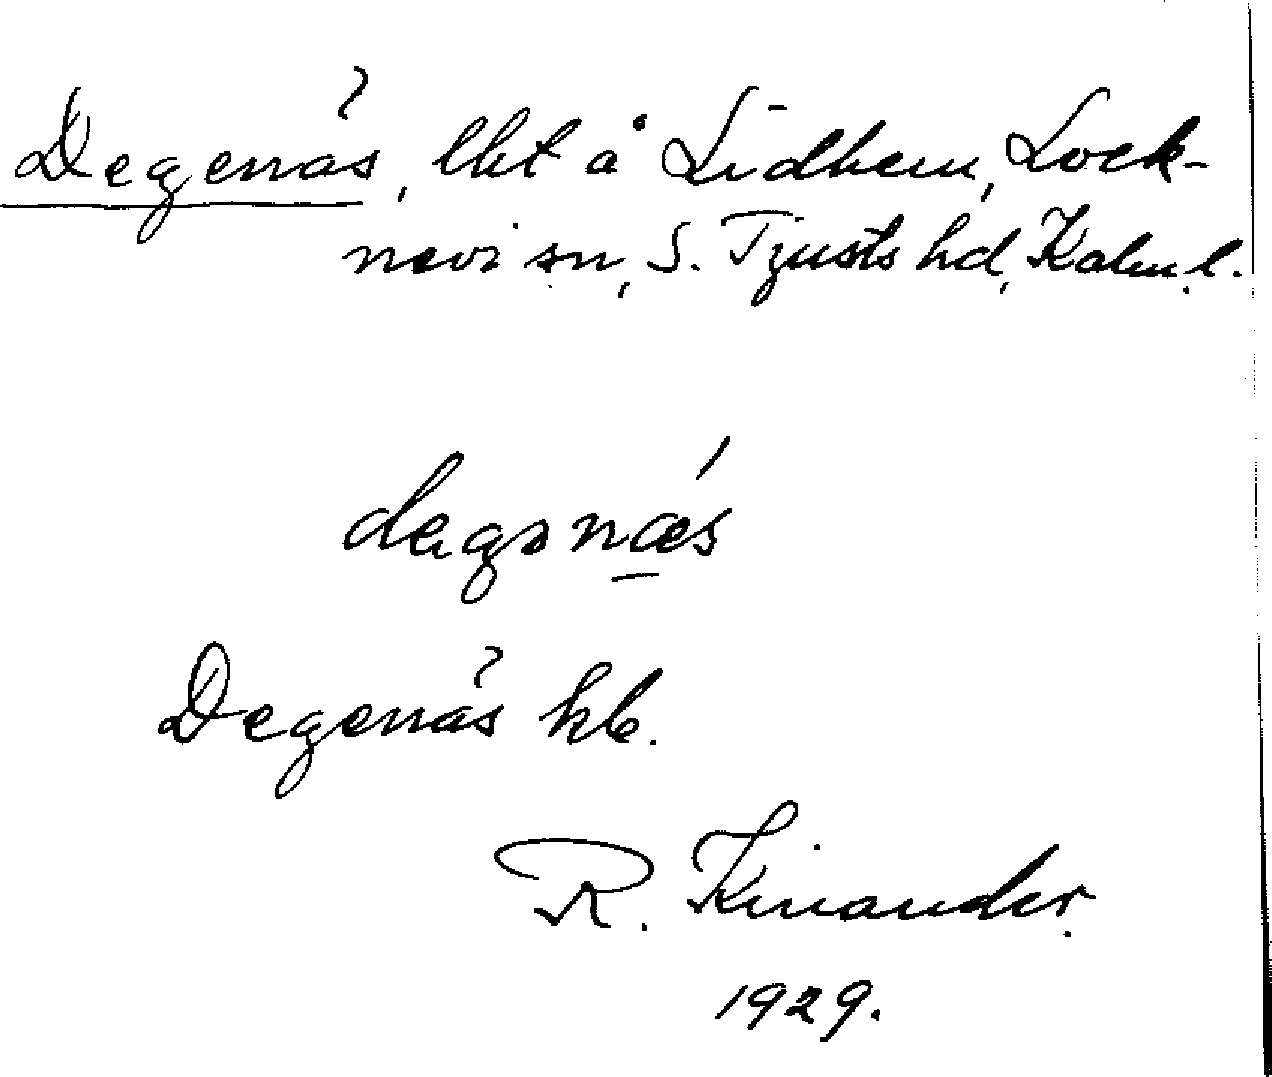 Degenäs, lht å Lidhem, Lock-
nevi sn, S. Tjusts hd, Kalm. l.
degənæs
Degenäs kb.
R. Kinander.
1929.